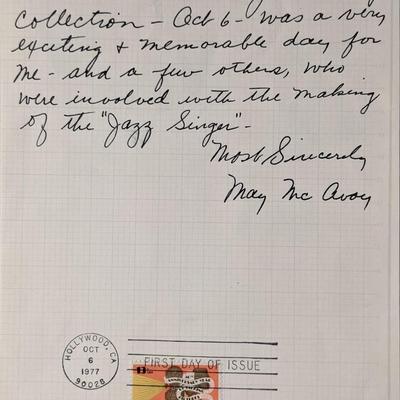 collection - Oct 6 - was a very
exciting & memorable day for
me - and a few others, who
were involved with the making
of the "Jazz Singer" -
Most Sincerely
May Mc Avoy
HOLLYWOOD, CA
OCT
6
1977
90028
FIRST DAY OF ISSUE
13c
50th
ANNIVERSARY YEAR
OF TALKING
PICTURES